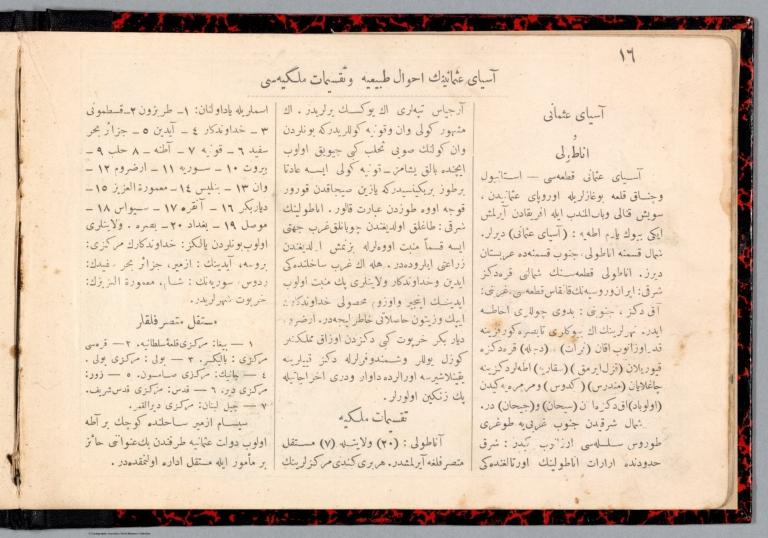 ١٦
آسیای عثمانینك احوال طبیعیه وتقسیمات ملكیه‌سی
آسیای عثمانی
و
اناطولی
آسیای عثمانی قطعه‌سی — استانبول
وچناق قلعه بوغازلریله اوروپای عثمانیدن ،
سویش قنالی وباب‌المندب ایله افریقادن آیرلمش
ایكی بیوك یارم اطه‌یه : (آسیای عثمانی) دیرلر.
شمال قسمنه اناطولی، جنوب قسمنه‌ده عربستان
دیرز. اناطولی قطعه‌سنك شمالی قره‌دكز
شرقی: ایران وروسیه‌نك قافقاس قطعه‌سی، غربی:
آق دكز ، جنوبی : بدوی چوللری احاطه
ایدر. نهرلرینك اك بیوكلری تا بصره كورفزینه
قدر اوزانوب آقان (فرات) (دجله) قره‌دكزه
قویولان (قزل ایرمق) (سقاریه) اطه‌لردكزینه
چاغلایان (مندرس) (كدوس) ومرمره‌یه كیدن
(اولوباد) آق دكزه آقان (سیحان) و(جیحان) در.
شمال شرقدن جنوب غربی‌یه طوغری
طوروس سلسله‌سی اوزانوب كیدر : شرق
حدودنده ارارات اناطولینك اورتالغنده‌كی
آرجیاس تپه‌لری اك یوكسك یرلریدر. اك
مشهور كولی وان وقونیه كوللریدركه بونلردن
وان كولنك صویی تحلب كبی جیویق اولوب
ایچنده بالق یشامز — قونیه كولی ایسه عادتا
برطوز بریكینتیسیدركه یازین صیجاقدن قورور
قوجه اووه طوزدن عبارت قالور . اناطولینك
شرقی : طاغلق اولدیغندن چوبانلق غرب جهتی
ایسه قسماً منبت اووه‌لرله بزنمش اولدیغندن
زراعتی ایلروده‌در. هله اك غرب ساحلنده‌كی
آیدین وخداوندكار ولایتلری پك منبت اولوب
آیدینك اینجیر واوزوم محصولی خداوندكارك
ایپك وزیتون حاصلاتی خاطرلیجه‌در. ارضروم
دیار بكر خرپوت كبی دكزدن اوزاق مملكتلر
كوزل یوللر وشمندوفرلرله دكز قییلرینه
یقینلاشیرسه اورالرده داوار ودری اخراجاتیله
پك زنكین اولورلر.
تقسیمات ملكیه
آناطولی : (٢٠) ولایتله (٧) مستقل
متصرفلغه آیرلمشدر. هر بری كندی مركزلرینك
اسملریله یاد اولنان: ١— طربزون ٢— قسطمونی
٣ — خداوندكار ٤ — آیدین ٥ — جزائر بحر
سفید ٦ — قونیه ٧ — آطنه ٨ — حلب ٩ —
بیروت ١٠ — سوریه ١١ — ارضروم ١٢ —
وان ١٣ — بتلیس ١٤ — معمورة العزیز ١٥ —
دیاربكر ١٦ — آنقره ١٧ — سیواس ١٨ —
موصل ١٩ — بغداد ٢٠ — بصره . ولایتلری
اولوب بونلردن یالكز: خداوندكارك مركزی:
بروسه، آیدینك : ازمیر، جزائر بحر سفیدك:
ردوس، سوریه‌نك : شام، معمورة العزیزك:
خرپوت شهرلریدر.
مستقل متصرفلقلر
١ — بیغا: مركزی قلعهٔ سلطانیه. ٢ — قره‌سی
مركزی : بالیكسر. ٣ — بولی : مركزی بولی .
٤ — جانیك: مركزی صامسون. ٥ — زور:
مركزی دیر. ٦ — قدس: مركزی قدس شریف.
٧ — جبل لبنان: مركزی دیرالقمر.
سیسام ازمیر ساحلنده كوچك بر آطه
اولوب دولت عثمانیه طرفندن بك عنوانی حائز
بر مأمور ایله مستقل اداره اولنمقده‌در.